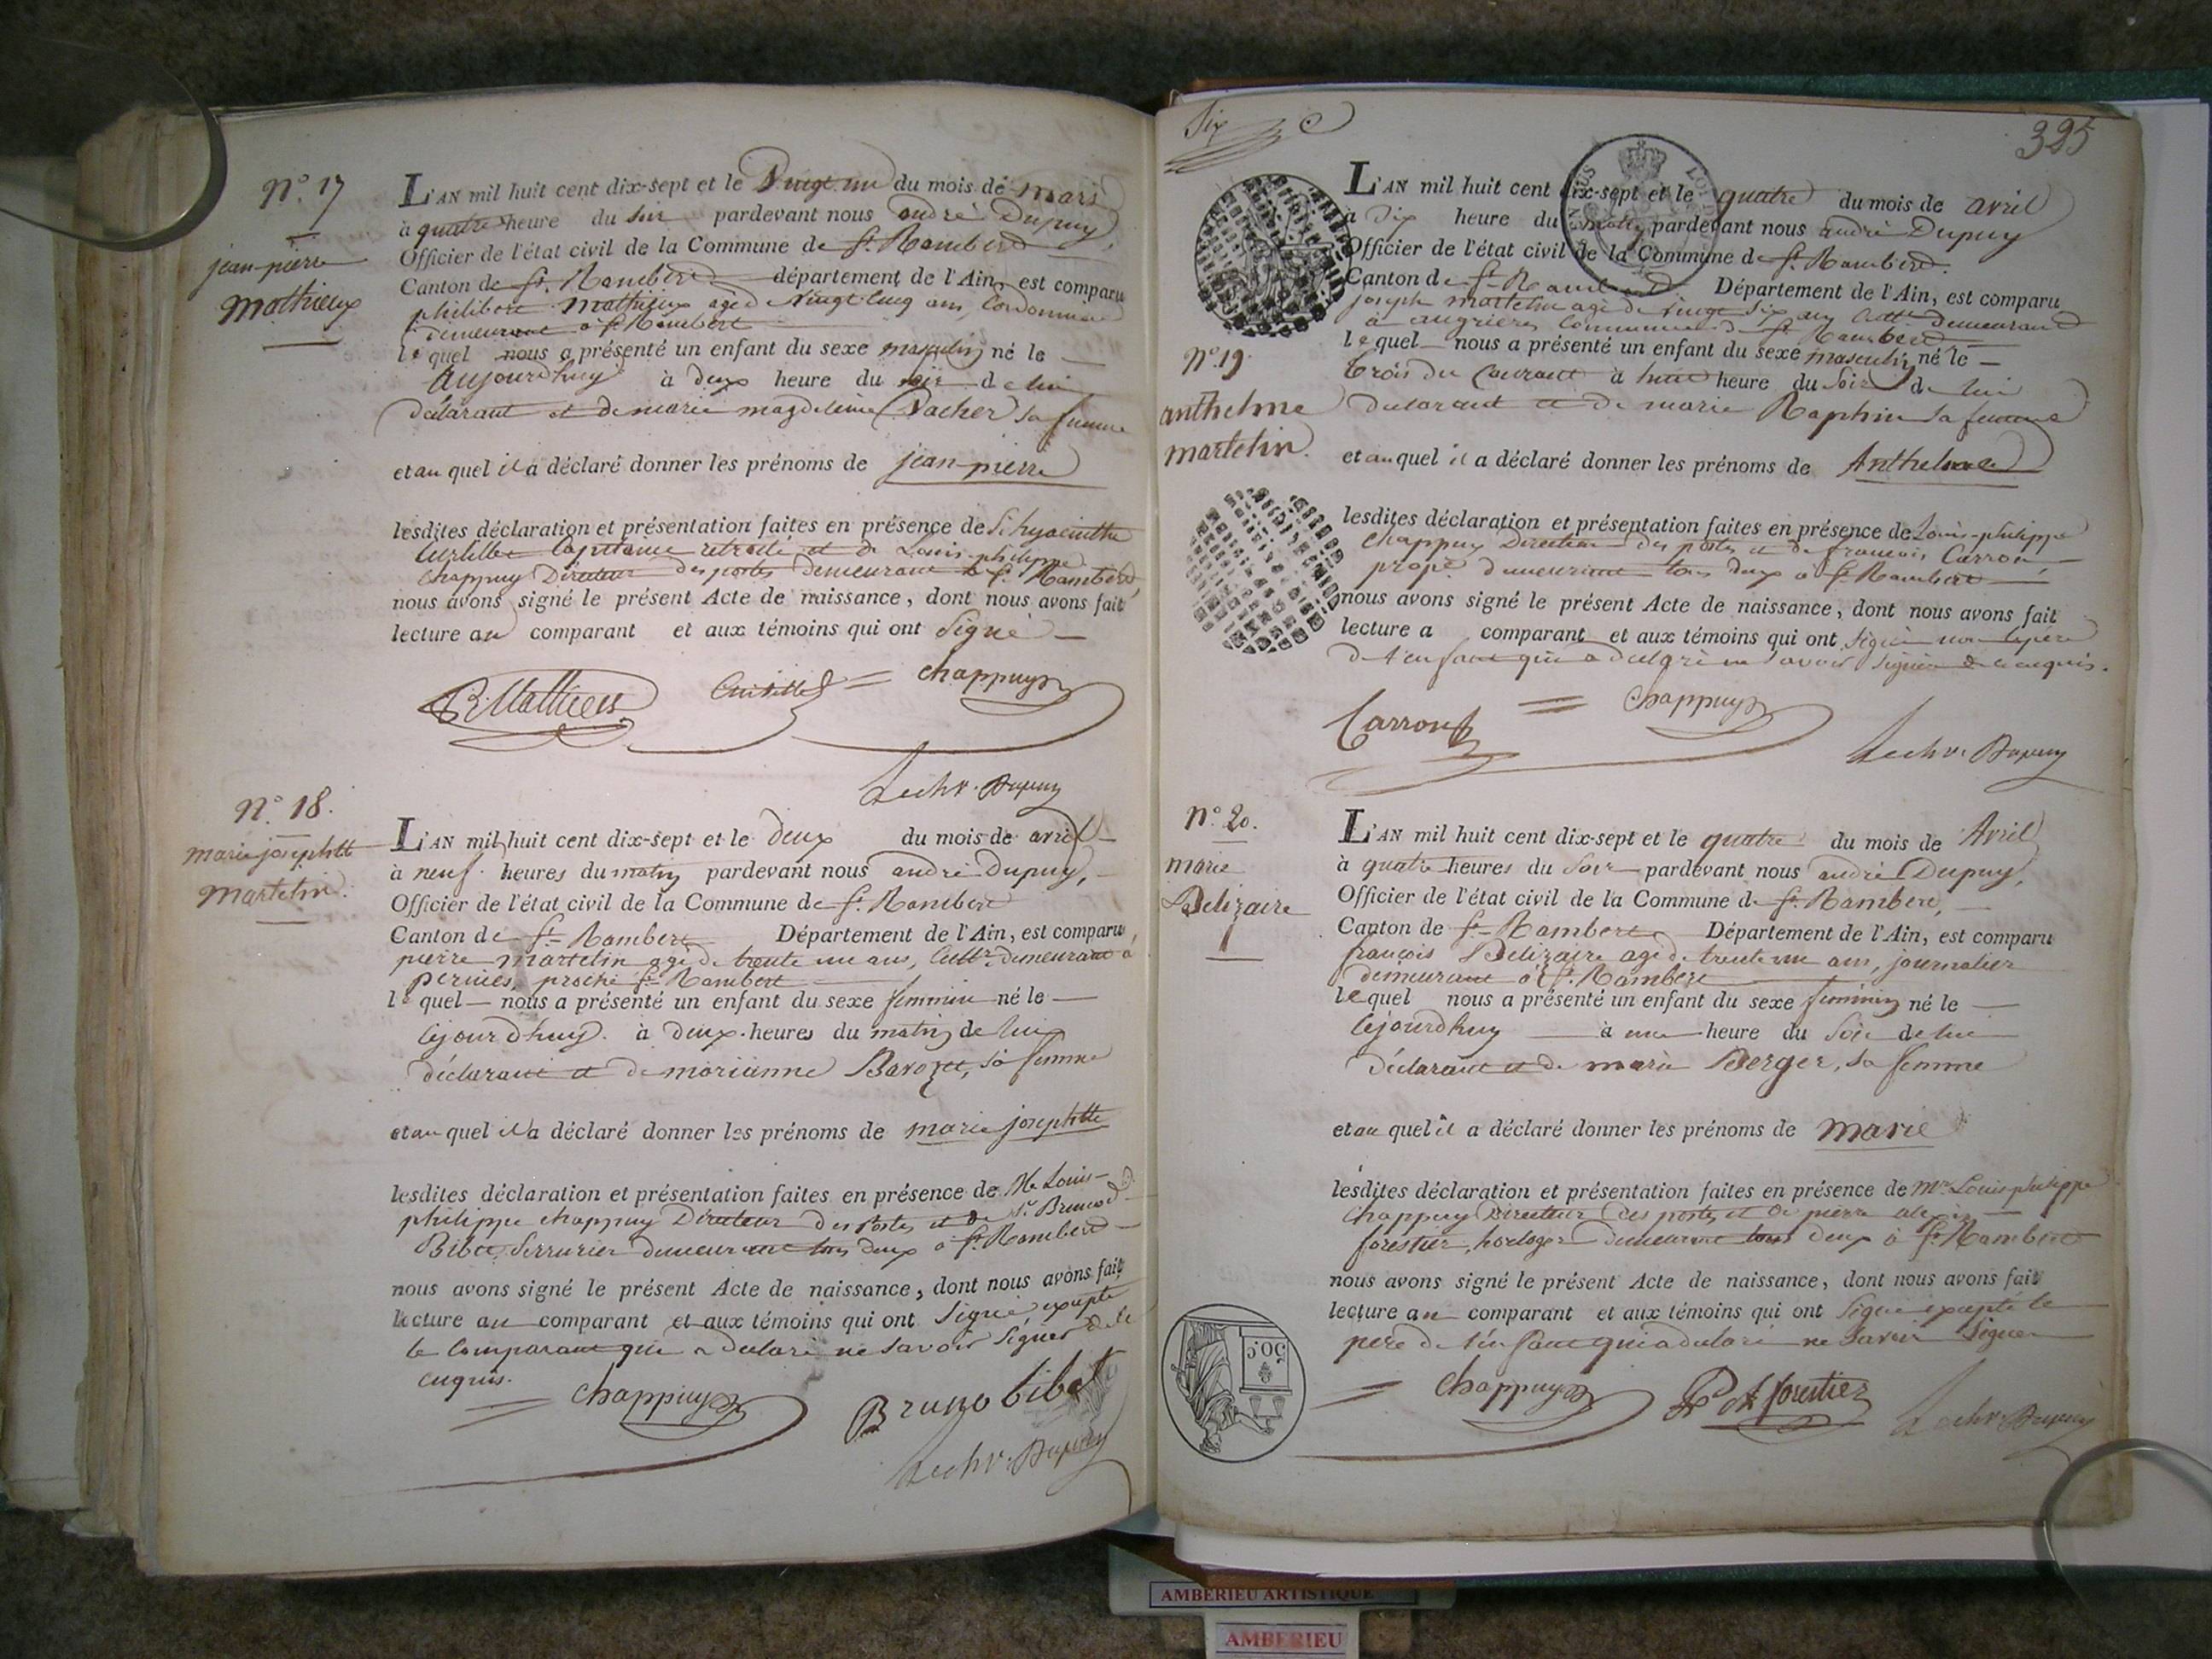 N.° 17
jean-pierre
Mathieux
L'AN mil huit cent dix-sept et le Vingt un du mois de mars
à quatre heure du soir pardevant nous andré Dupuy,
Officier de l'état civil de la Commune de St. Rambert
Canton de St. Rambert département de l'Ain, est comparu
philibert Mathieux agé de vingt cinq ans, Cordonnier
demeurant a St Rambert
lequel nous a présenté un enfant du sexe masculin né le
aujourdhuy à deux heure du soir de lui
déclarant et de marie magdeleine Vacher sa femme
et au quel il a déclaré donner les prénoms de jean-pierre
lesdites déclaration et présentation faites en présence de Sr. hyacinthe
Capitaine retraité et de Louis-philippe
Chappuy Directeur des postes demeurant à St. Rambert
nous avons signé le présent Acte de naissance, dont nous avons fait
lecture au comparant et aux témoins qui ont signé
Mathieux chappuy
Lechv. Dupuy
N.° 18.
marie josephtte
martelin
L'AN mil huit cent dix-sept et le deux du mois de avril
à neuf heures du matin pardevant nous andré Dupuy,
Officier de l'état civil de la Commune de St. Rambert
Canton de St Rambert Département de l'Ain, est comparu
pierre martelin agé de trente un ans, Cultr. demeurant à
proche St Rambert
lequel nous a présenté un enfant du sexe feminin né le
cejourdhuy à deux heures du matin de lui
déclarant et de marianne Bavozet, sa femme
et au quel il a déclaré donner les prénoms de marie josephtte
lesdites déclaration et présentation faites en présence de Mr Louis-
philippe chappuy Directeur des Postes et de Sr. Bruno
Bibet Serrurier demeurant tous deux à St. Rambert
nous avons signé le présent Acte de naissance, dont nous avons fait
lecture au comparant et aux témoins qui ont signé excepté
le Comparant qui a déclaré ne savoir signer de ce
enquis.
chappuy Bruno bibet
Lechv. Dupuy
Six
395
N.° 19.
anthelme
martelin.
L'AN mil huit cent dix-sept et le quatre du mois de avril
à Dix heure du matin pardevant nous andré Dupuy
Officier de l'état civil de la Commune de St. Rambert.
Canton de St Rambert Département de l'Ain, est comparu
joseph martelin agé de vingt six ans Cultr. demeurant
à angrieres Commune de St Rambert
lequel nous a présenté un enfant du sexe masculin né le
trois du Courant à huit heure du Soir de lui
déclarant et de marie Raphin sa femme
et au quel il a déclaré donner les prénoms de Anthelme
lesdites déclaration et présentation faites en présence de Louis-philippe
Chappuy Directeur des postes et de francois Carron
propr. demeurant tous deux à St. Rambert
nous avons signé le présent Acte de naissance, dont nous avons fait
lecture a comparant et aux témoins qui ont signé non le père
de l'enfant qui a déclaré ne savoir signer de ce enquis.
Carron chappuy
Lechv. Dupuy
N.° 20.
marie
Belizaire
L'AN mil huit cent dix-sept et le quatre du mois de Avril
à quatre heures du Soir pardevant nous andré Dupuy,
Officier de l'état civil de la Commune de St. Rambert,
Canton de St Rambert Département de l'Ain, est comparu
françois Belizaire agé de trente un ans, journalier
demeurant à St. Rambert
lequel nous a présenté un enfant du sexe feminin né le
cejourdhuy à une heure du Soir de lui
déclarant et de marie Berger, sa femme
et au quel il a déclaré donner les prénoms de marie
lesdites déclaration et présentation faites en présence de Mr. Louis philippe
Chappuy Directeur des postes et de pierre alexis
forestier, horloger demeurant tous deux à St Rambert
nous avons signé le présent Acte de naissance, dont nous avons fait
lecture au comparant et aux témoins qui ont signé excepté le
père de l'enfant qui a déclaré ne savoir signer
chappuy forestier Lechv. Dupuy
50.c
AMBERIEU ARTISTIQUE
AMBERIEU